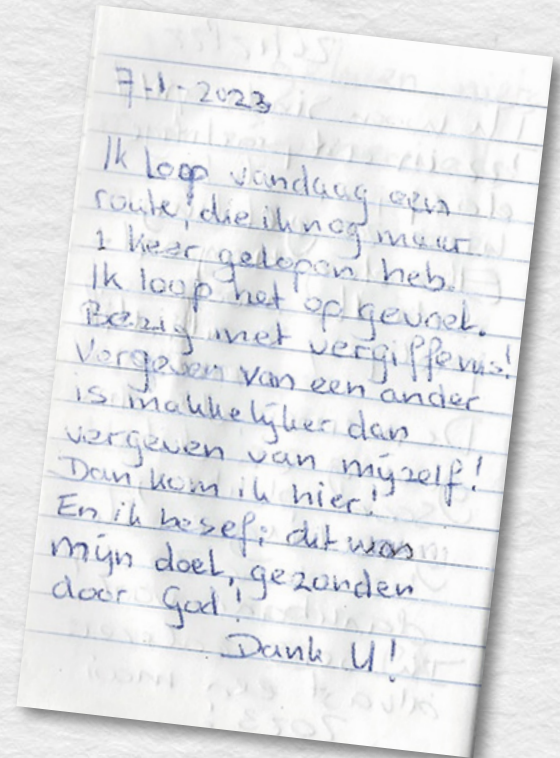 7-1-2023
Ik loop vandaag een
route, die ik nog maar
1 keer gelopen heb.
Ik loop het op gevoel.
Bezig met vergiffenis!
Vergeven van een ander
is makkelijker dan
vergeven van mijzelf!
Dan kom ik hier!
En ik besef; dit was
mijn doel, gezonden
door God!
Dank U!